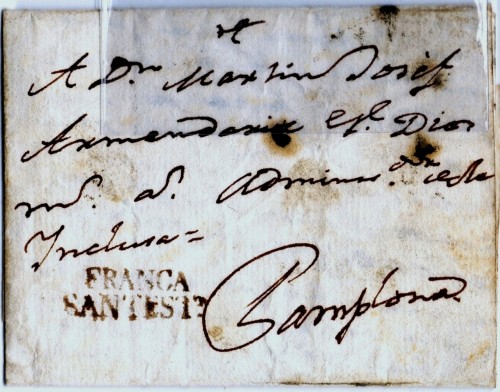 A Dn. Martin Josef
Armendariz qe. Dios
ms. as. Adminisor. de la
Inclusa=
FRANCA
SANTESTN
Pamplona